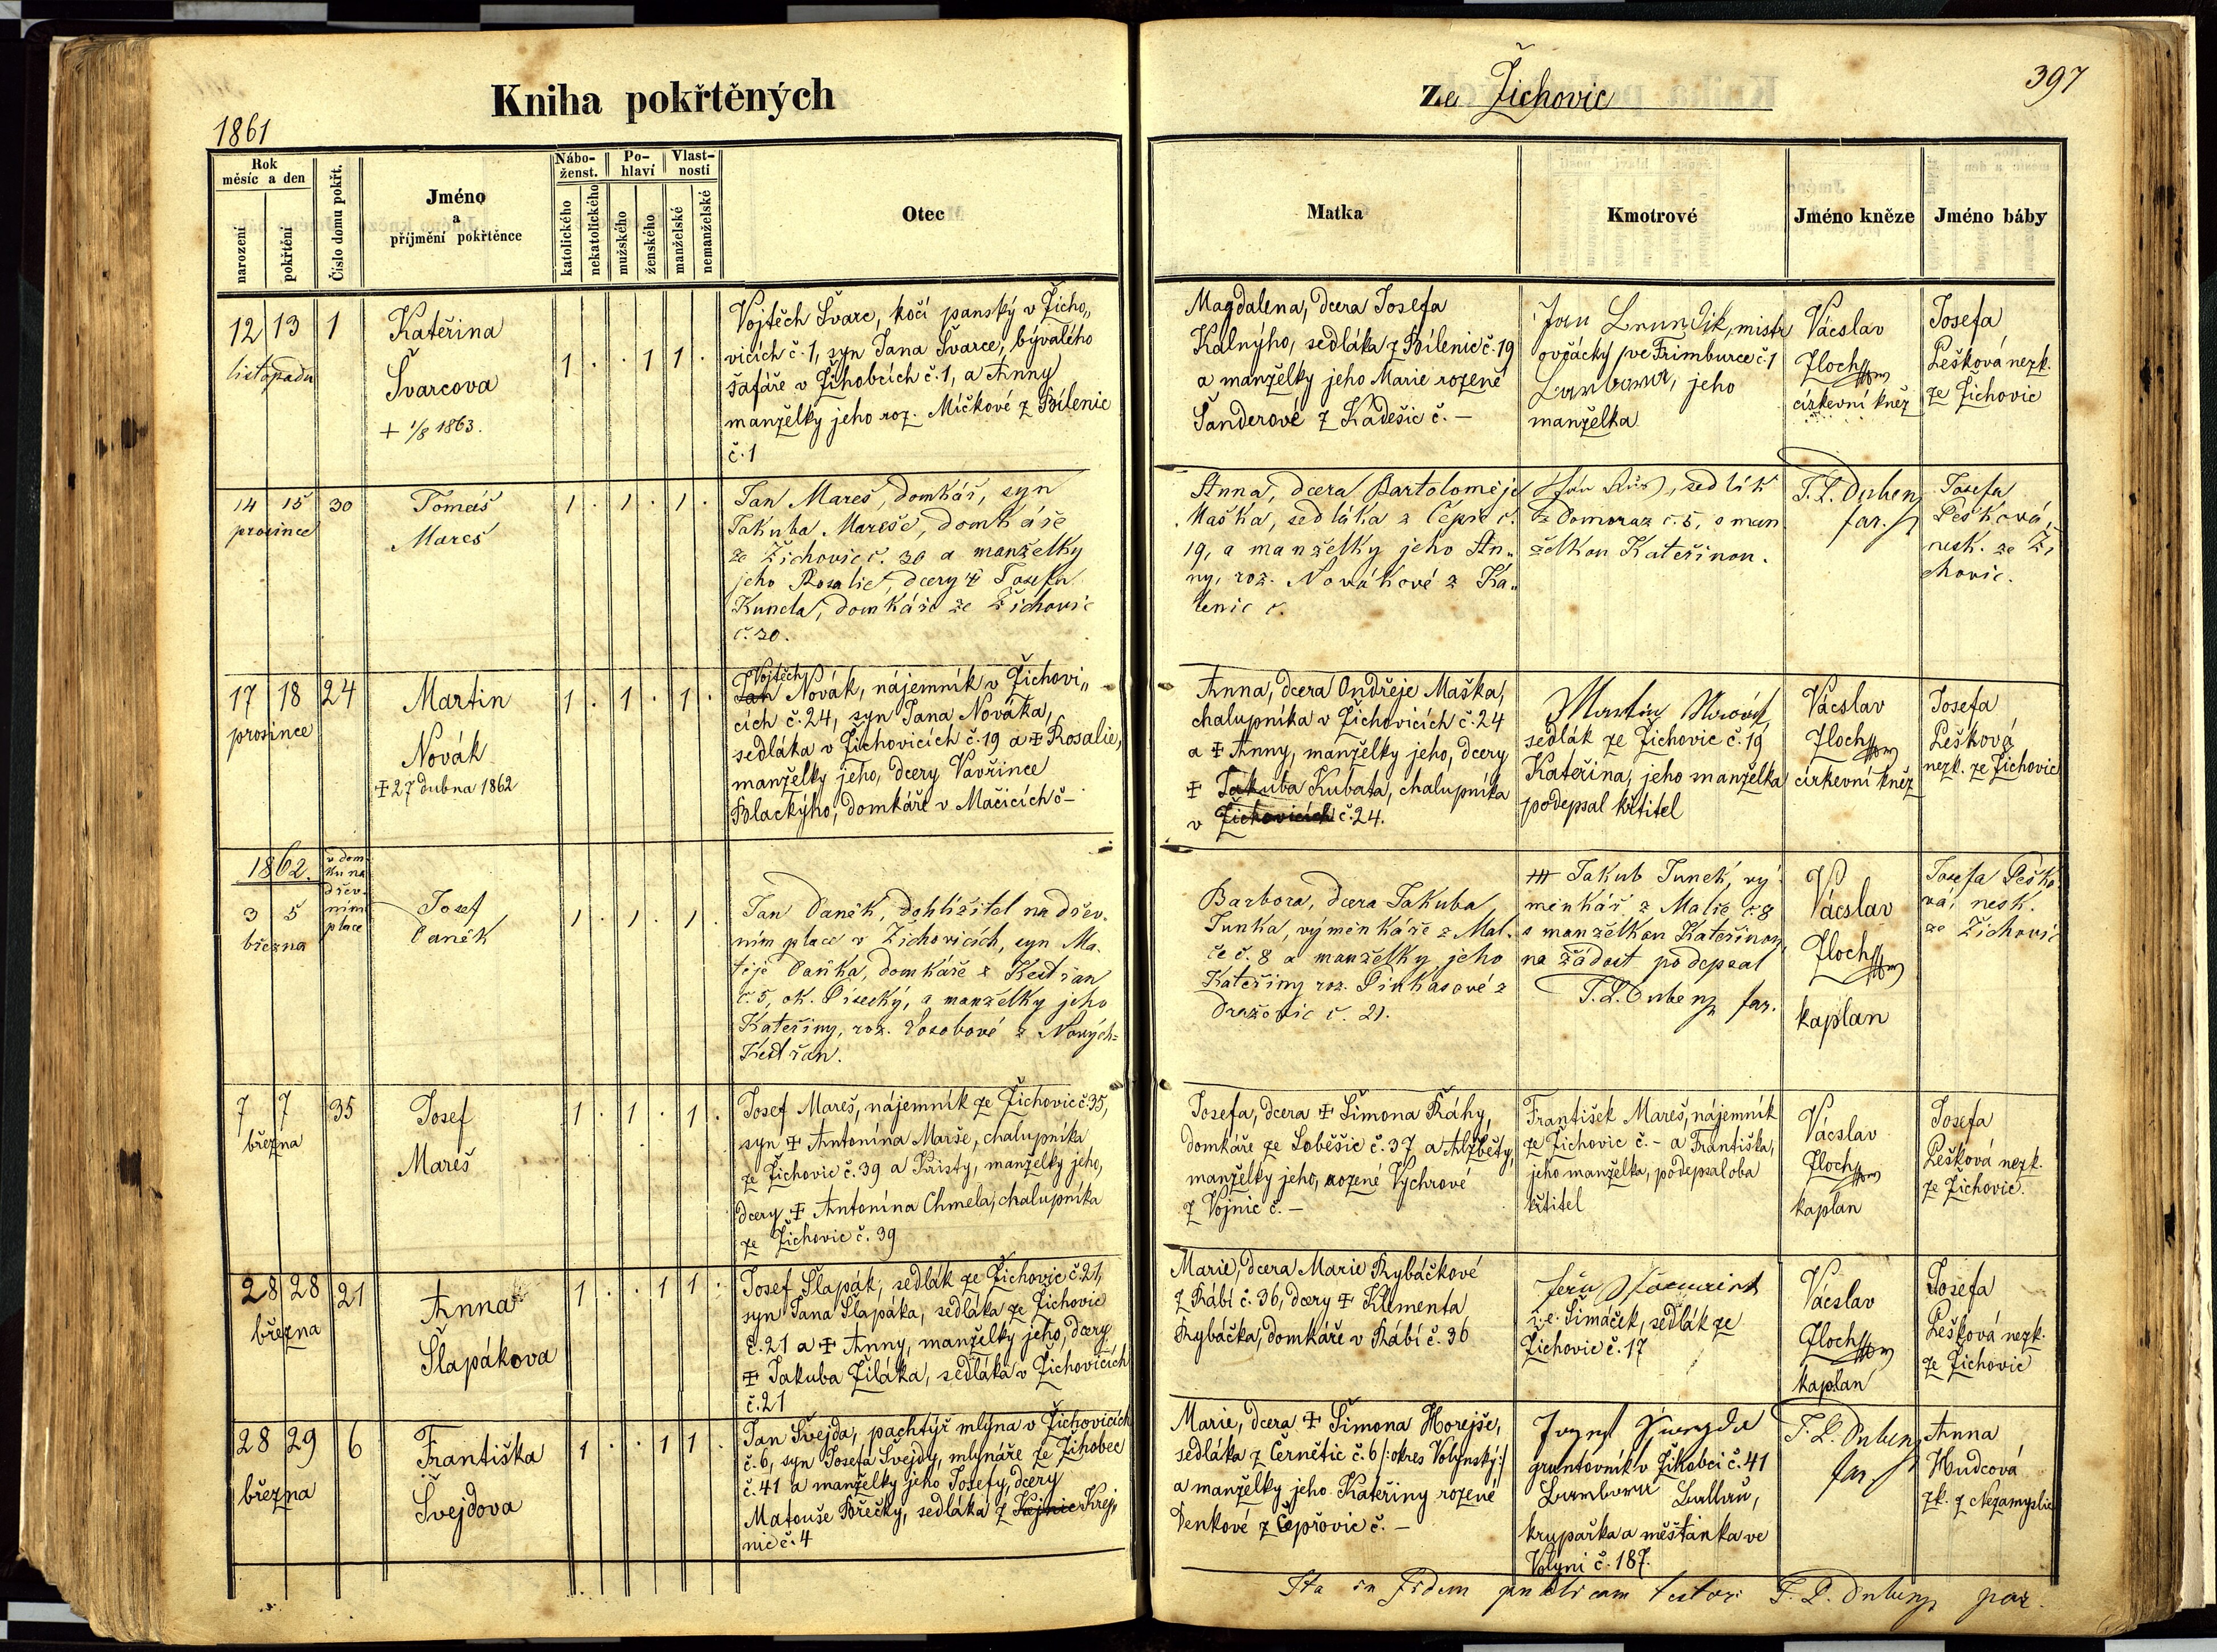 Kniha pokřtěných
ze Žichovic
397
1861
Rok
měsíc a den
narození
pokřtění
Číslo domu pokřt.
Jméno
a
příjmění pokřtěnce
Nábo-
ženst.
katolického
nekatolického
Po-
hlaví
mužského
ženského
Vlast-
nosti
manželské
nemanželské
Otec
Matka
Kmotrové
Jméno kněze
Jméno báby
12 13 1
listopadu
Kateřina
Švarcova
+ 1/8 1863.
1 . . 1 1 .
Vojtěch Švarc, kočí panský v Žicho„
vicích č. 1, syn Jana Švarce, bývalého
šafáře v Žihobcích č. 1, a Anny
manželky jeho roz. Míčkové z Bílenic
č. 1
Magdalena, dcera Josefa
Kalnýho, sedláka z Bílenic č. 19
a manželky jeho Marie rozené
Šanderové z Kadešic č. –
Jan mistr
ovčácký ve Frimburce č. 1
Barbora, jeho
manželka
Vácslav
Zloch
církevní kněz
Josefa
Pešková nezk.
ze Žichovic
14 15 30
prosince
Tomáš
Mareš
1 . 1 . 1 .
Jan Mareš, domkář, syn
Jakuba Mareše, domkáře
ze Žichovic č. 30 a manželky
jeho Rosalie, dcery ‡ Josefa
Kuncla, domkáře ze Žichovic
č. 20.
Anna, dcera Bartoloměje
Maška, sedláka z Čepic č.
19, a manželky jeho An„
ny, roz. Novákové z Ka„
lenic č.
Jan sedlák
z Domoraz č. 5, s man
želkou Kateřinou.
T. L. Dubenz
far.
Josefa
Pešková,
nesk. ze Ži
chovic.
17 18 24
prosince
Martin
Novák
‡ 27 dubna 1862
1 . 1 . 1 .
Vojtěch
Jan Novák, nájemník v Žichovi„
cích č. 24, syn Jana Nováka,
sedláka v Žichovicích č. 19 a ‡ Rosalie,
manželky jeho, dcery Vavřince
Blackýho, domkáře v Mačicích č –
Anna, dcera Ondřeje Maška,
chalupníka v Žichovicích č. 24
a ‡ Anny, manželky jeho, dcery
‡ Jakuba Kubata, chalupníka
v Žichovicích č. 24.
Martin Novák
sedlák ze Žichovic č. 19
Kateřina, jeho manželka
podepsal křtitel
Vácslav
Zloch
církevní kněz
Josefa
Pešková
nezk. ze Žichovic
1862.
v dom
ku na
dřev.
ním
place
3 5
března
Josef
Daněk
1 . 1 . 1
Jan Daněk, dohlížitel na dřev.
ním place v Žichovicích, syn Ma.
těje Daňka, domkáře z Kestřan
č. 5, ok. Písecký, a manželky jeho
Kateřiny, roz. Dosobové z Nových=
Kestřan.
Barbora, dcera Jakuba
Junka, výměnkáře z Mal.
če č. 8 a manželky jeho
Kateřiny roz. Pinkasové z
Dražovic č. 21.
+++ Jakub Junek, vý
měnkář z Malče č. 8
s manželkou Kateřinou,
na žádost podepsal
T. L. Dubenz far.
Vácslav
Zloch
kaplan
Josefa Peško.
vá, nesk.
ze Žichovic
7 7 35
března
Josef
Mareš
1 . 1 . 1 .
Josef Mareš, nájemník ze Žichovic č. 35,
syn ‡ Antonína Marše, chalupníka
ze Žichovic č. 39 a Kristy, manželky jeho,
dcery ‡ Antonína Chmela, chalupníka
ze Žichovic č. 39
Josefa, dcera ‡ Šimona Ráhy,
domkáře ze Soběšic č. 37 a Alžběty,
manželky jeho, rozené Vychrové
z Vojnic č. –
František Mareš, nájemník
ze Žichovic č. – a Františka,
jeho manželka, podepsal oba
křtitel
Vácslav
Zloch
kaplan
Josefa
Pešková nezk.
ze Žichovic.
28 28 21
března
Anna
Šlapákova
1 . . 1 1 .
Josef Šlapák, sedlák ze Žichovic č. 21,
syn Jana Šlapáka, sedláka ze Žichovic
č. 21 a ‡ Anny, manželky jeho, dcery
‡ Jakuba Žiláka, sedláka v Žichovicích
č. 21
Marie, dcera Marie Rybáčkové
z Rábí č. 36, dcery ‡ Klimenta
Rybáčka, domkáře v Rábí č. 36
i. e. Šimáček, sedlák ze
Žichovic č. 17
Vácslav
Zloch
kaplan
Josefa
Pešková nezk.
ze Žichovic
28 29 6
března
Františka
Švejdova
1 . . 1 1 .
Jan Švejda, pachtýř mlýna v Žichovicích
č. 6, syn Josefa Švejdy, mlynáře ze Žihobec
č. 41 a manželky jeho Josefy, dcery
Matouše Břečky, sedláka z Kejnic Krej„
nic č. 4
Marie, dcera ‡ Šimona Horejše,
sedláka z Černětic č. 6 /: okres Volynský :/
a manželky jeho Kateřiny rozené
Denkové z Čepřovic č. –
gruntovník v Žihobci č. 41
Barbora
krupařka a měšťanka ve
Volyni č. 187.
T. L. Dubenz
far.
Anna
Hudcová
zk. z Nezamyslic
Ita in fidem publicam testor: T. L. Dubenz par.